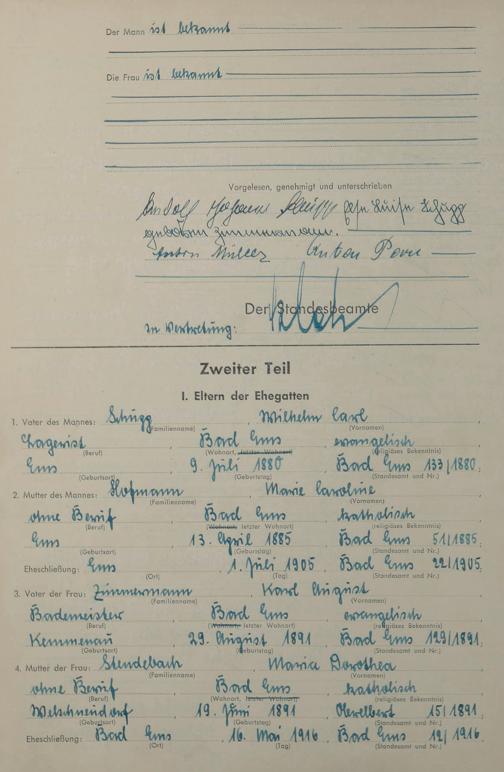 Der Mann ist bekannt
Die Frau ist bekannt
Vorgelesen, genehmigt und unterschrieben
Rudolf Johann Schupp Else Luise Schupp
geborene Zimmermann.
Anton Müller Anton
Der Standesbeamte
In Vertretung:
Zweiter Teil
I. Eltern der Ehegatten
1. Vater des Mannes: Schupp, Wilhelm Carl
(Familienname) (Vornamen)
Lagerist, Bad Ems, evangelisch
(Beruf) (Wohnort, letzter Wohnort) (religiöses Bekenntnis)
Ems, 9. Juli 1880, Bad Ems 133/1880,
(Geburtsort) (Geburtstag) (Standesamt und Nr.)
2. Mutter des Mannes: Hofmann, Marie Caroline
(Familienname) (Vornamen)
ohne Beruf, Bad Ems, katholisch
(Beruf) (Wohnort letzter Wohnort) (religiöses Bekenntnis)
Ems, 13. April 1885, Bad Ems 51/1885,
(Geburtsort) (Geburtstag) (Standesamt und Nr.)
Eheschließung: Ems, 1. Juli 1905, Bad Ems 22/1905.
(Ort) (Tag) (Standesamt und Nr.)
3. Vater der Frau: Zimmermann, Karl August
(Familienname) (Vornamen)
Bademeister, Bad Ems, evangelisch
(Beruf) (Wohnort letzter Wohnort) (religiöses Bekenntnis)
Kemmenau, 29. August 1891, Bad Ems 129/1891,
(Geburtsort) (Geburtstag) (Standesamt und Nr.)
4. Mutter der Frau: Stendebach, Maria Dorothea
(Familienname) (Vornamen)
ohne Beruf, Bad Ems, katholisch
(Beruf) (Wohnort, letzter Wohnort) (religiöses Bekenntnis)
Welschneudorf, 19. Juni 1891, 15/1891,
(Geburtsort) (Geburtstag) (Standesamt und Nr.)
Eheschließung: Bad Ems, 16. Mai 1916, Bad Ems 12/1916
(Ort) (Tag) (Standesamt und Nr.)